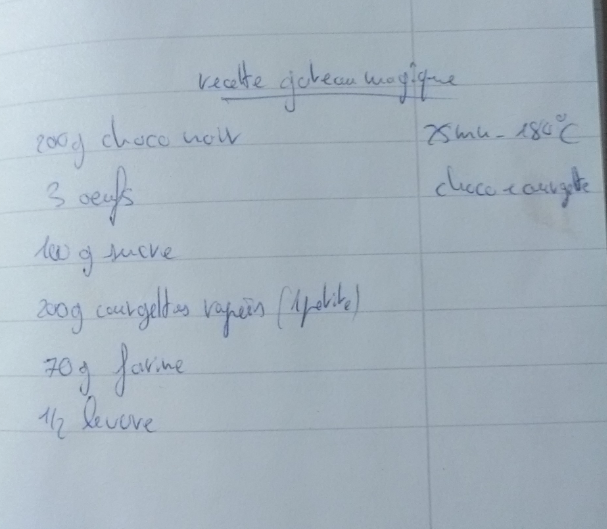 recette gateau magique
200g choco noir
3 oeufs
100 g sucre
200g courgettes rapées (1 petite)
70g farine
1/2 levure
25mn - 180°C
choco + courgette